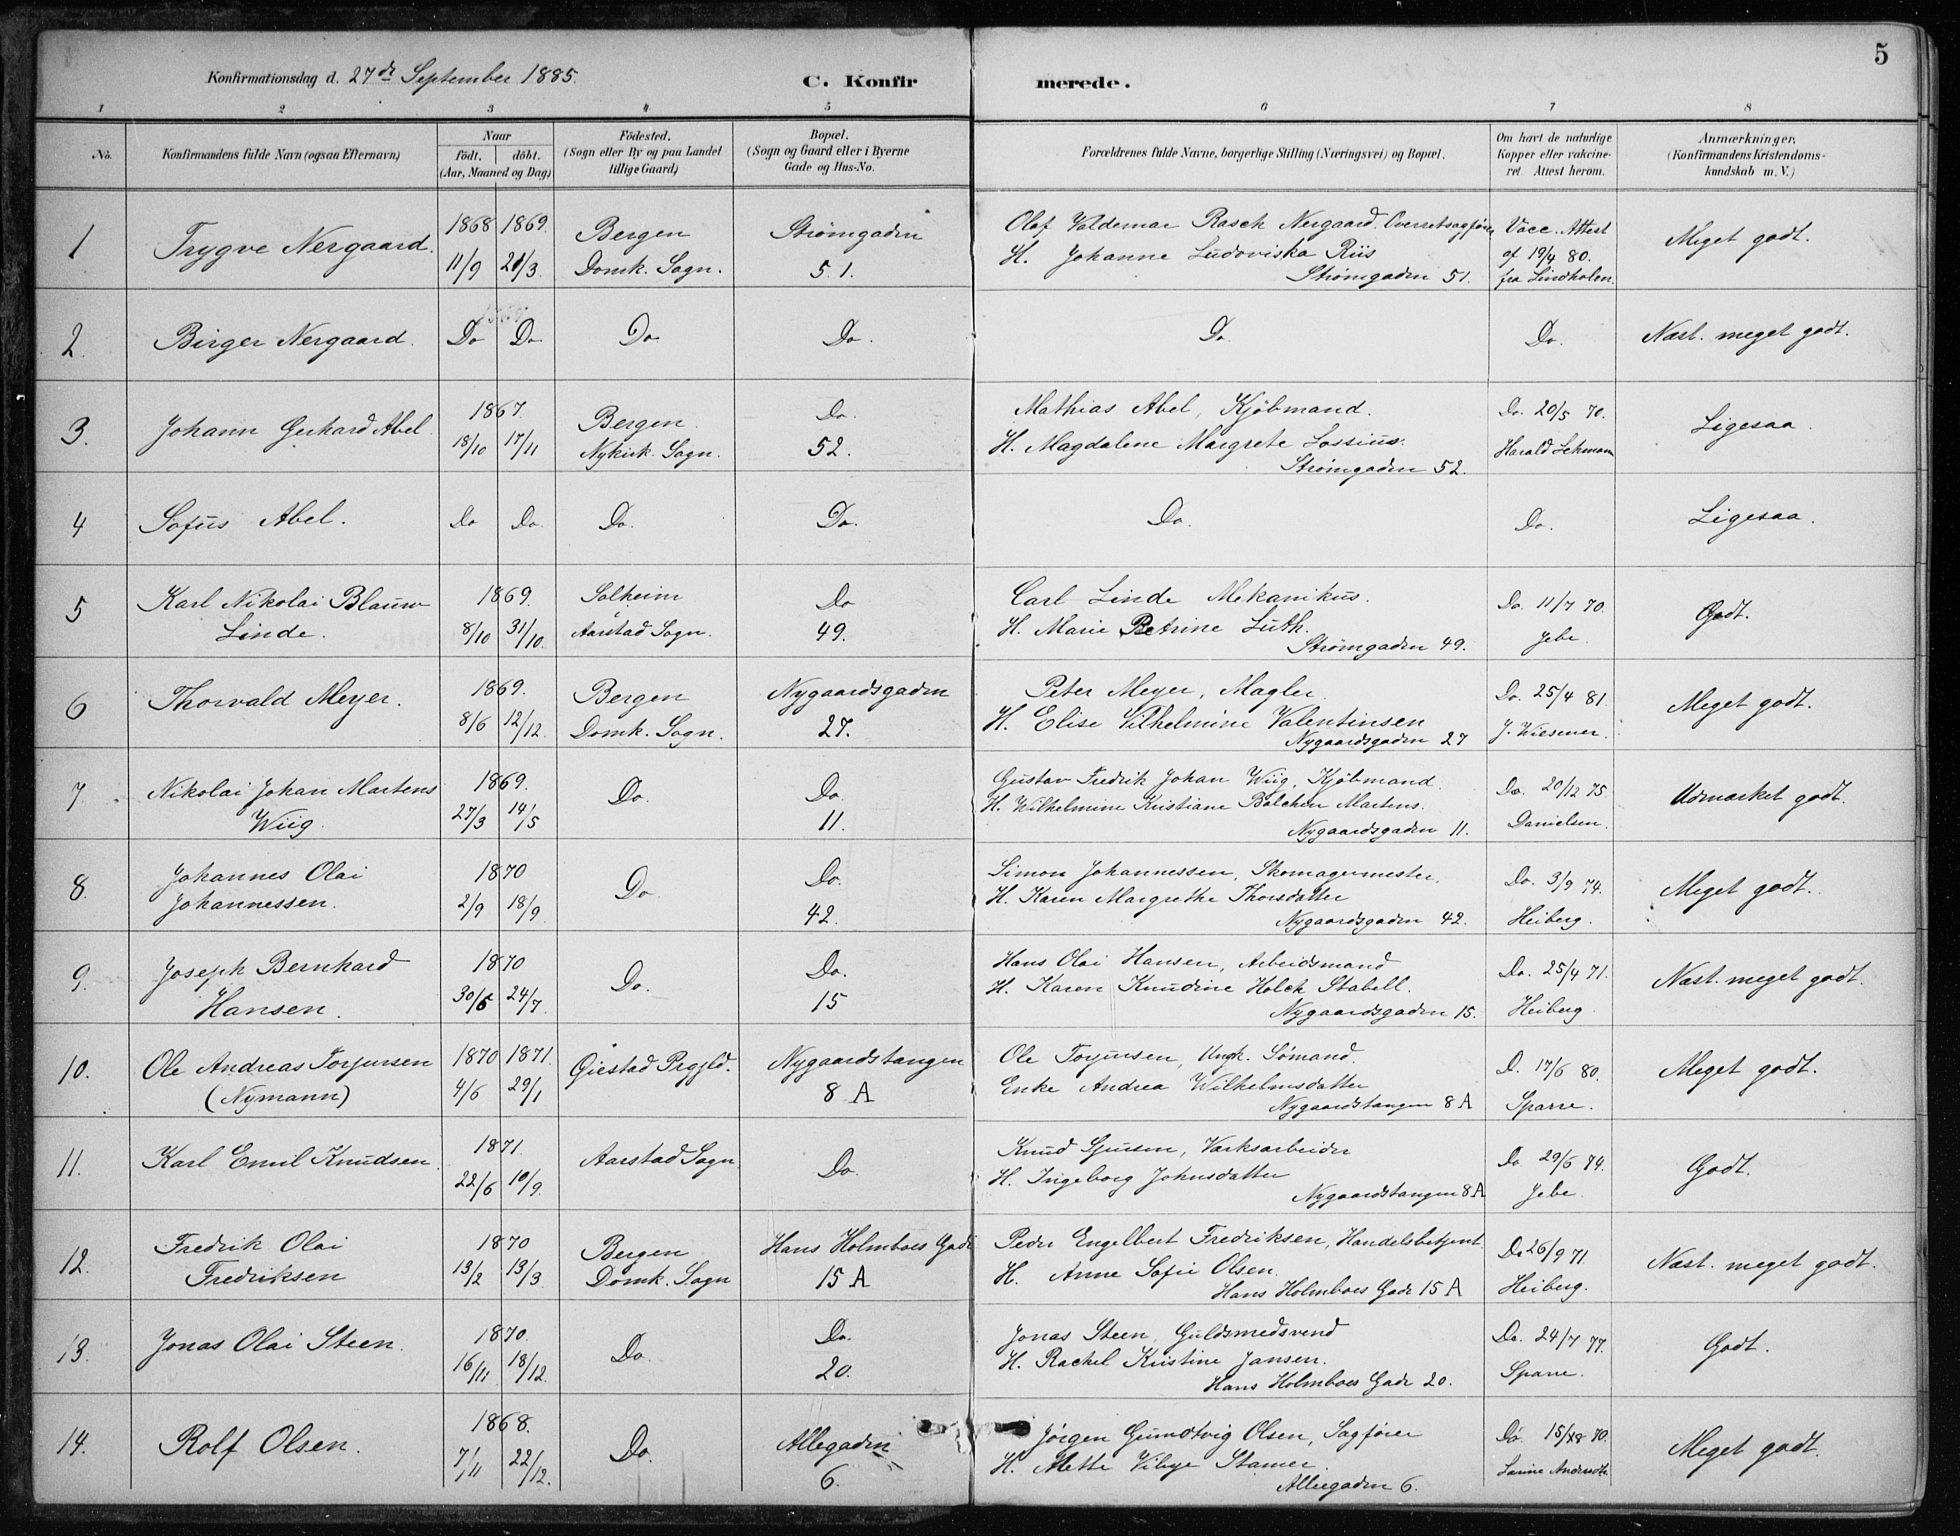 5
Konfirmationsdag d. 27de September 1885.
C. Konfir merede.
1 2 3 4 5 6 7 8
No.
Konfirmandens fulde Navn (ogsaa Efternavn)
Naar
födt. döbt.
(Aar, Maaned og Dag)
Födested.
(Sogn eller By og paa Landet
tillige Gaard)
Bopæl.
(Sogn og Gaard eller i Byerne
Gade og Hus-No.
Forældrenes fulde Navne, borgerlige Stilling (Næringsvei) og Bopæl.
Om havt de naturlige
Kopper eller vakcine-
ret. Attest herom.
Anmærkninger,
(Konfirmandens Kristendoms-
kundskab m. V.)
1
Trygve Nergaard.
1868 1869.
11/9 21/3.
Bergen
Domk. Sogn.
Strømgaden
51.
Olaf Valdemar Rasch Nergaard. Overretsagfører
H. Johanne Ludoviska Riis
Strømgaden 51.
Vacc. Attest
af 19/4 80.
fra Lindholm.
Meget godt.
2.
Birger Nergaard.
Do Do
Do
Do.
Do.
Do.
Næst. meget godt.
3.
Johann Gerhard Abel
1867.
18/10 17/11
Bergen.
Nykirk. Sogn.
Do.
52.
Mathias Abel, Kjöbmand.
H. Magdalene Margrete Lossius.
Strømgaden 52.
Do. 20/5 70.
Harald Lehmann
Ligesaa
4
Sofus Abel.
Do Do.
Do.
Do.
Do.
Do.
Ligesaa.
5
Karl Nikolai Blauw
Linde.
1869.
8/10 31/10.
Solheim
Aarstad Sogn.
Do
49.
Carl Linde Mekanikus.
H. Marie Petrine Luth.
Strømgaden 49.
Do. 11/7 70.
Jebe
Godt.
6
Thorvald Meyer.
1869.
8/6 12/12.
Bergen
Domk. Sogn.
Nygaardsgaden
27.
Peter Meyer, Mægler
H. Elise Vilhelmine Valentinsen
Nygaardsgaden 27
Do. 25/4 81.
J. Wiesener.
Meget godt.
7
Nikolai Johan Martens
Wiig.
1869.
27/3 14/5
Do.
Do.
11.
Gustav Fredrik Johan Wiig, Kjöbmand.
H. Wilhelmine Kristiane Balchen Martens.
Nygaardsgaden 11.
Do. 20/12 75.
Danielsen.
Udmærket godt.
8.
Johannes Olai
Johannessen.
1870
2/9 18/9.
Do
Do.
42.
Simon Johannessen, Skomagermester.
H. Karen Margrethe Thorsdatter
Nygaardsgaden 42.
Do. 3/9 74.
Heiberg.
Meget godt.
9.
Joseph Bernhard
Hansen.
1870
30/5 24/7.
Do.
Do.
15
Hans Olai Hansen, Arbeidsmand
H. Karen Knudine Holck Stabell.
Nygaardsgaden 15.
Do. 25/4 71.
Heiberg.
Næst. meget godt.
10.
Ole Andreas Torjursen
(Nymann)
1870 1871.
4/6 29/1
Øiestad Prgjld.
Nygaardstangen
8 A
Ole Torjursen, Ungk. Sømand.
Enke Andrea Wilhelmsdatter
Nygaardstangen 8 A
D. 17/6 80.
Sparre.
Meget godt.
11.
Karl Emil Knudsen.
1871.
22/6 10/9.
Aarstad Sogn
Do.
Knud Sjursen, Værksarbeider
H. Ingeborg Johnsdatter
Nygaardstangen 8 A
Do 29/6 74.
Jebe.
Godt.
12.
Fredrik Olai
Fredriksen
1870
13/2 13/3.
Bergen
Domk. Sogn
Hans Holmboes Gade
15 A
Peder Engelbert Fredriksen, Handelsbetjent
H. Anne Sofie Olsen.
Hans Holmboes Gade 15 A
Do 26/9 71.
Heiberg.
Næst. meget godt.
13.
Jonas Olai Steen.
1870.
16/11 18/12.
Do.
Do.
20.
Jonas Steen, Guldsmedsvend
H. Rachel Kristine Jansen.
Hans Holmboes Gade 20.
Do. 24/7 77.
Sparre.
Godt.
14.
Rolf Olsen.
1868.
7/11 22/12.
Do.
Allegaden
6.
Jørgen Grundtvig Olsen, Sagfører
H. Mette Vibye Stamer.
Alleegaden 6.
Do. 70.
Meget godt.